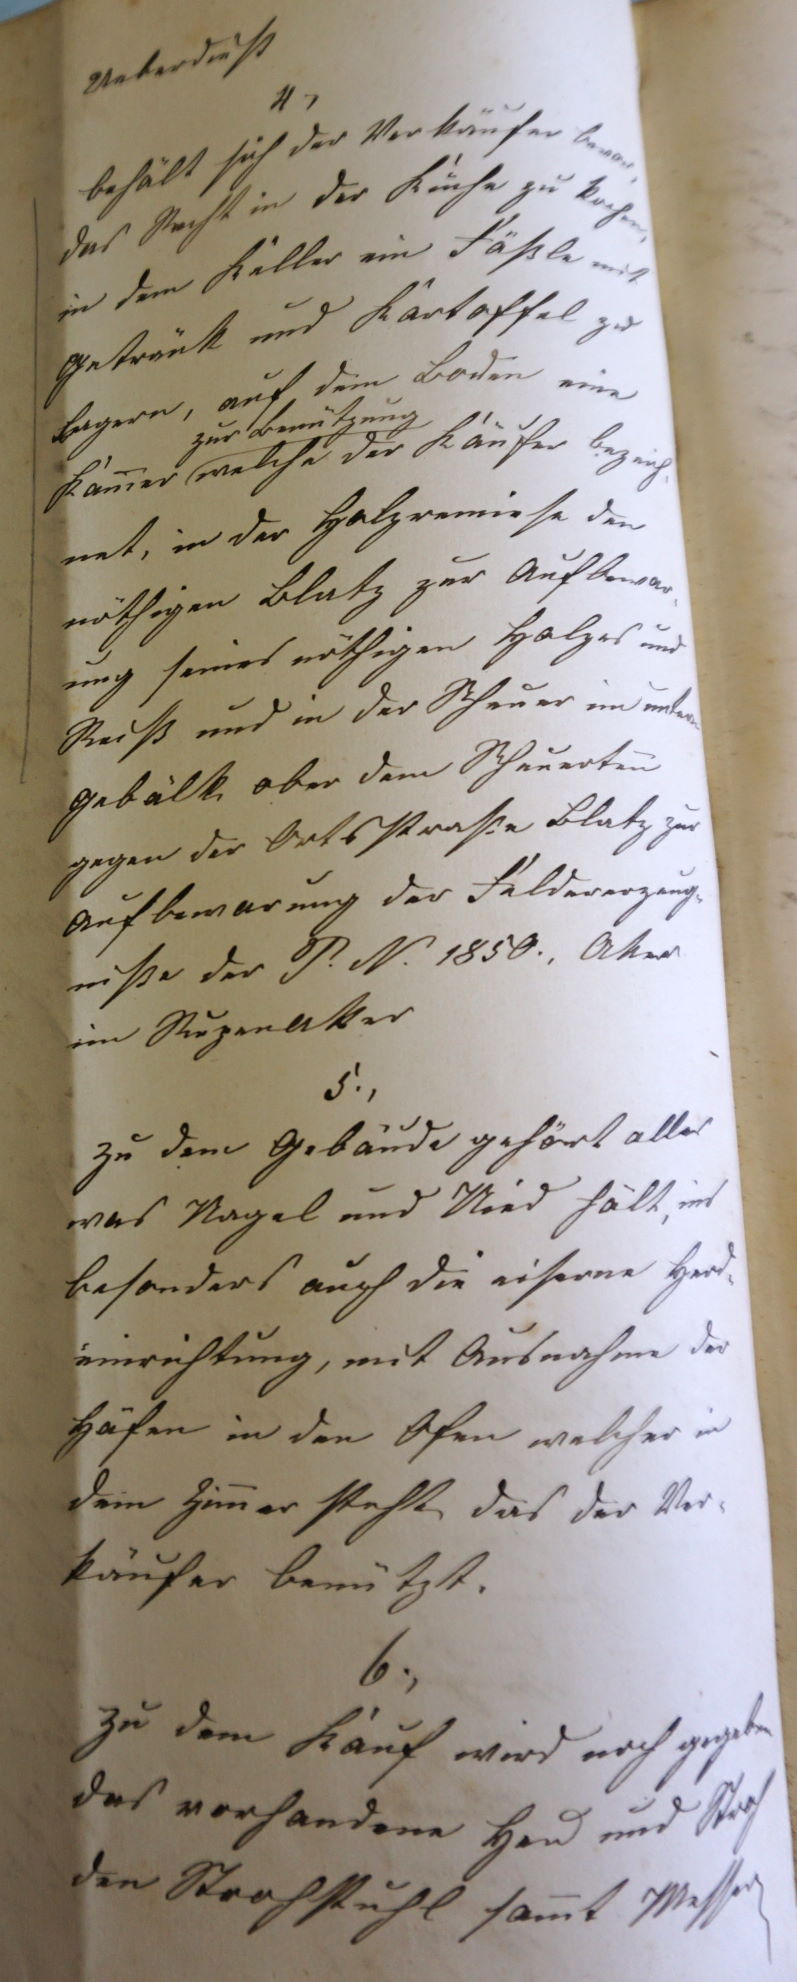 Ueberdieß
4.,
behält sich der Verkäufer bevor,
das Recht in der Küche zu kochen,
in dem Keller ein Fäßle mit
Getränk und Kartoffel zu
lagern, auf dem Boden eine
zur Benützung
Kam̄er welche der Käufer bezeich-
net, in der Holzremiese den
nöthigen Blatz zur Aufbewar-
ung seines nöthigen Holzes und
Reiß und in der Scheuer im untern
Gebälk ober dem Scheuerten̄
gegen der Ortsstraße Blatz zur
Aufbewarung der Felderzeug-
niße der P. N. 1850., Aker
im Ruzenakker
5.,
Zu dem Gebäude gehört alles
was Nagel und Nied hält, ins
besonders auch die eiserne Herd-
einrichtung, mit Ausnahme der
Häfen in den Ofen welcher in
dem Zim̄er steht das der Ver-
käufer benützt.
6.,
Zu dem Kauf wird noch gegeben
das vorhandene Heu und Stroh
den Strohstuhl sam̄t Messer